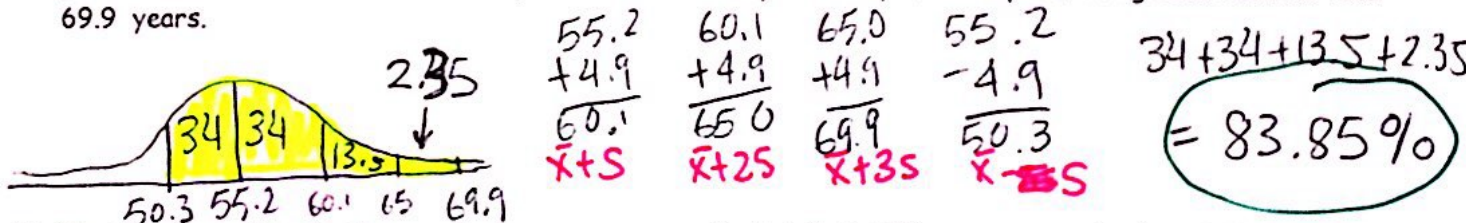 69.9 years.
2.35
34 34 13.5
50.3 55.2 60.1 65 69.9
55.2
+4.9
60.1
x̄+S
60.1
+4.9
65 0
x̄+2S
65.0
+4.9
69.9
x̄+3S
55.2
-4.9
50.3
x̄-S
34+34+13.5+2.35
= 83.85%